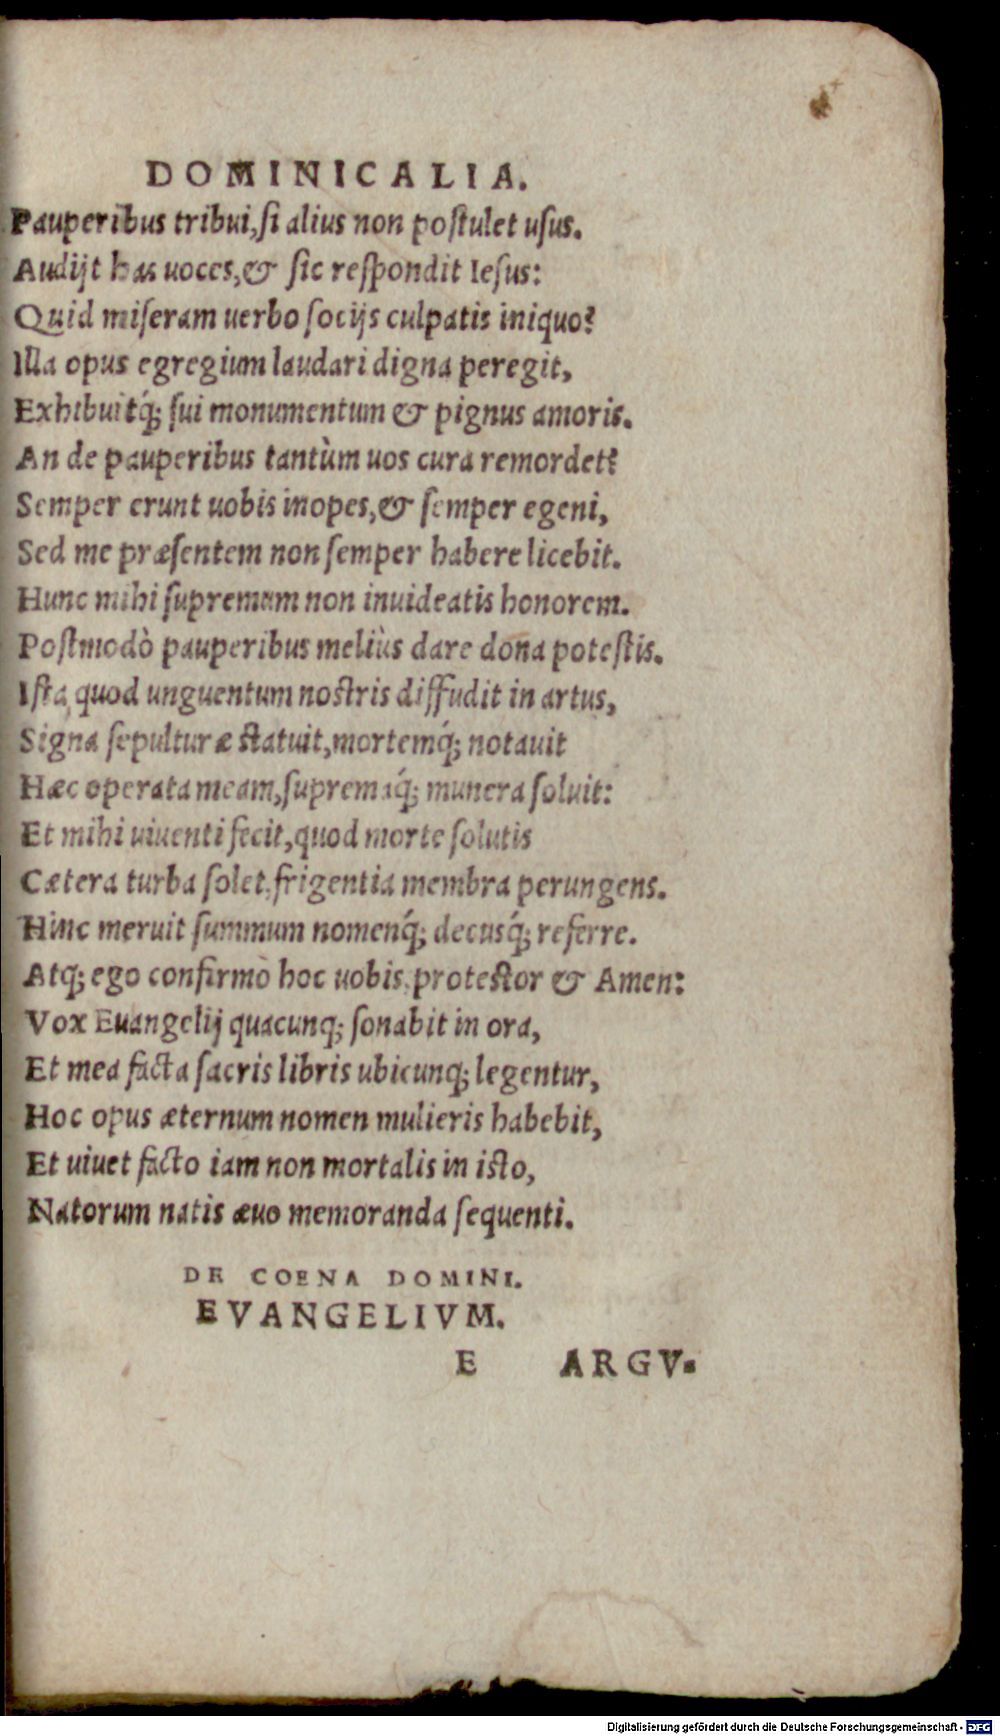 DOMINICALIA.
Pauperibus tribui, si alius non postulet usus.
Audijt has uoces, & sic respondit Iesus:
Quid miseram uerbo socijs culpatis iniquo?
Illa opus egregium laudari digna peregit,
Exhibuitq́; sui monumentum & pignus amoris.
An de pauperibus tantùm uos cura remordet?
Semper erunt uobis inopes, & semper egeni,
Sed me præsentem non semper habere licebit.
Hunc mihi supremum non inuideatis honorem.
Postmodò pauperibus meliùs dare dona potestis.
Ista quod unguentum nostris diffudit in artus,
Signa sepulturæ statuit, mortemq́; notauit
Hæc operata meam, supremaq́; munera soluit:
Et mihi uiuenti fecit, quod morte solutis
Cætera turba solet, frigentia membra perungens.
Hinc meruit summum nomenq́; decusq́; referre.
Atq; ego confirmo hoc uobis, protestor & Amen:
Vox Euangelij quacunq; sonabit in ora,
Et mea facta sacris libris ubicunq; legentur,
Hoc opus æternum nomen mulieris habebit,
Et uiuet facto iam non mortalis in isto,
Natorum natis æuo memoranda sequenti.
DE COENA DOMINI.
EVANGELIVM.
E ARGV-
Digitalisierung gefördert durch die Deutsche Forschungsgemeinschaft - DFG